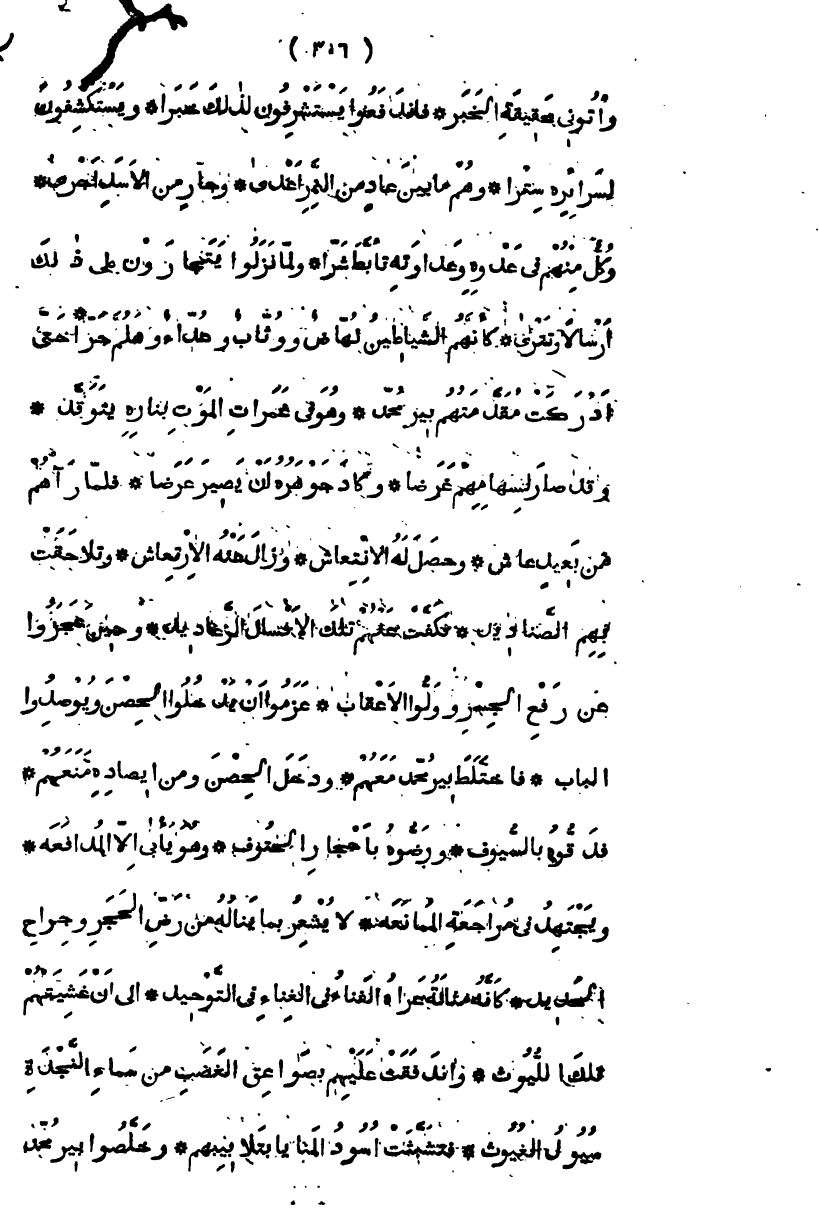 ( ٣١٦ )
وأتوني بحقيقة الخبر * فاندفعوا يستشرفون لذلك خبرا * ويستكشفون
لسرائره سترا * وهم ما بين عاد من النمر اعدى * وجار من الاسد اجرى *
وكل منهم في عدوه وعداوته تأبط شرا * ولما نزلوا يتنجازون على ذلك
أرسالا وتترى * كأنهم الشياطين نهاض ووثاب وهداء وهلم جرا حتى
ادركت مقدمتهم بير محمد * وهو في غمرات الموت بناره يتوقد *
وقد صار لسهامهم غرضا * وكاد جوهره لن يصير عرضا * فلما رآهم
من بعيد عاش * وحصل له الانتعاش * وزال عنه الارتعاش * وتلاحقت
بهم الصناديد * فكفت عنهم تلك الرعاديد * وحين عجزوا
عن رفع الجسر وولوا الاعقاب * عزموا ان يدخلوا الحصن ويوصدوا
الباب * فاختلط بير محمد معهم * ودخل الحصن ومن ايصاده منعهم *
فدقوه بالسيوف * ورضوه باحجار الحتوف * وهو يأبى الا المدافعه *
ويجتهد في مراجعة الممانعه * لا يشعر بما يناله من رض الحجر وجراح
الحديد * كأنه الفناء في التوحيد * الى ان غشيتهم
تلك الليوث * واندفقت عليهم بصواعق الغضب من سماء النجدة
سيول الغيوث * فتشبثت اسود المنايا بتلابيبهم * وخلصوا بير محمد